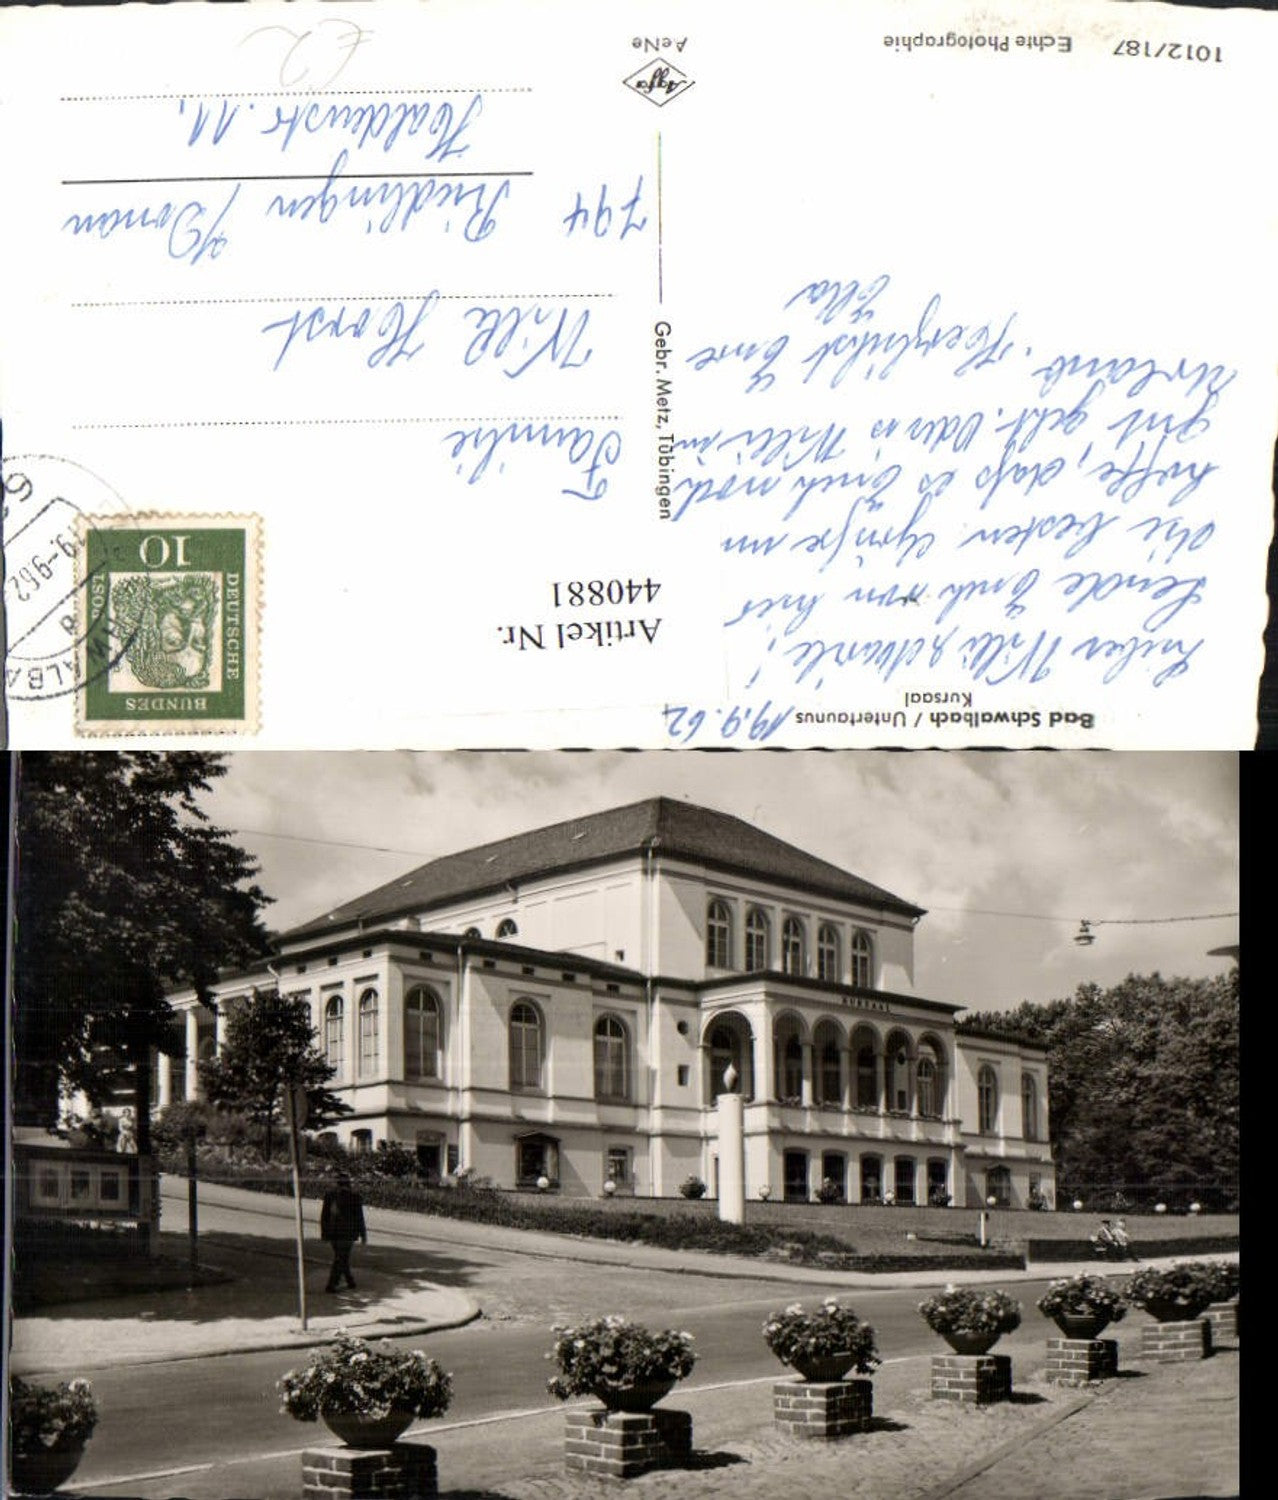 Bad Schwalbach / Untertaunus
Kursaal
19.9.62
Lieber Willi,
Sende Euch von hier
die besten Grüße un
hoffe, daß es Euch noch
gut geht. Willi in
Urlaub. Herzlichst Eure
Ella
1012/187
Echte Photographie
Agfa
AeNe
Gebr. Metz, Tübingen
Artikel Nr.
440881
BUNDES
DEUTSCHE
POST
10
19.-9.62
Familie
Willi Horst
794 Riedlingen / Donau
Haldenstr. 11,
€2
KURSAAL